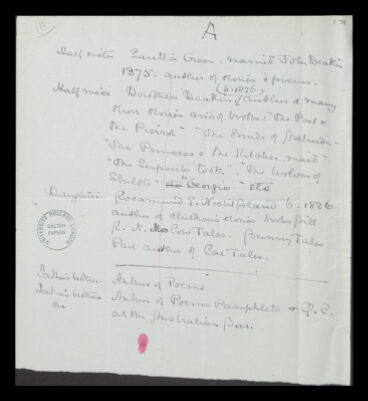 A
Half sister Saretta Green. married John Deakin
1875. author of stories & poems.
(b. 1876)
Half niece Dorothea Deakin, author of many
short stories and of books: "The Poet &
the Pierrot" "The Smile of Melinda"
"The Princess & the Kitchen maid"
"The Serpents tooth". "The Wolves of
"Georgie" etc
Daughter Rosamund E. Nesbit Bland b. 1886
author of children's stories books
Cat Tales. Bunny Tales
Part author of Cat Tales.
Father's brother. Author of Poems
Father's brothers Author of Poems Pamphlets & Q.C.
at the Australian Bar.
UNIVERSITY COLLEGE LONDON
GALTON
PAPERS